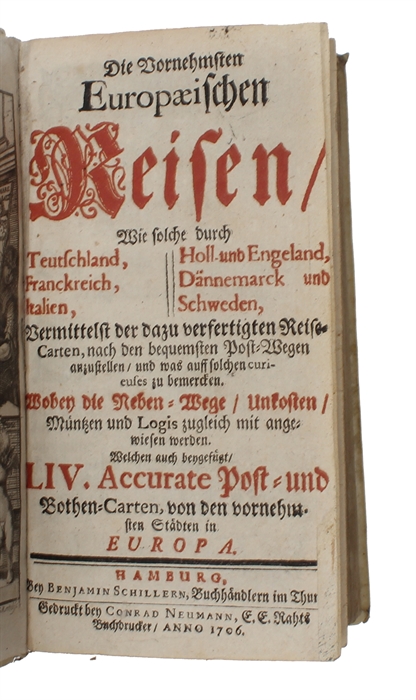 Die Vornehmsten
Europæischen
Reisen/
Wie solche durch
Teutschland, Holl- und Engeland,
Franckreich, Dännemarck und
Italien, Schweden,
Vermittelst der dazu verfertigten Reise-
Carten, nach den bequemsten Post-Wegen
anzustellen/ und was auff solchen curi-
euses zu bemercken.
Wobey die Neben-Wege/ Unkosten/
Müntzen und Logis zugleich mit ange-
wiesen werden.
Welchen auch beygefügt/
LIV. Accurate Post- und
Bothen-Carten, von den vornehm-
sten Städten in
EUROPA.
HAMBURG,
Bey BENJAMIN SCHILLERN, Buchhändlern im Thut
Gedruckt bey CONRAD NEUMANN, E. E. Rahts
Buchdrucker/ ANNO 1706.